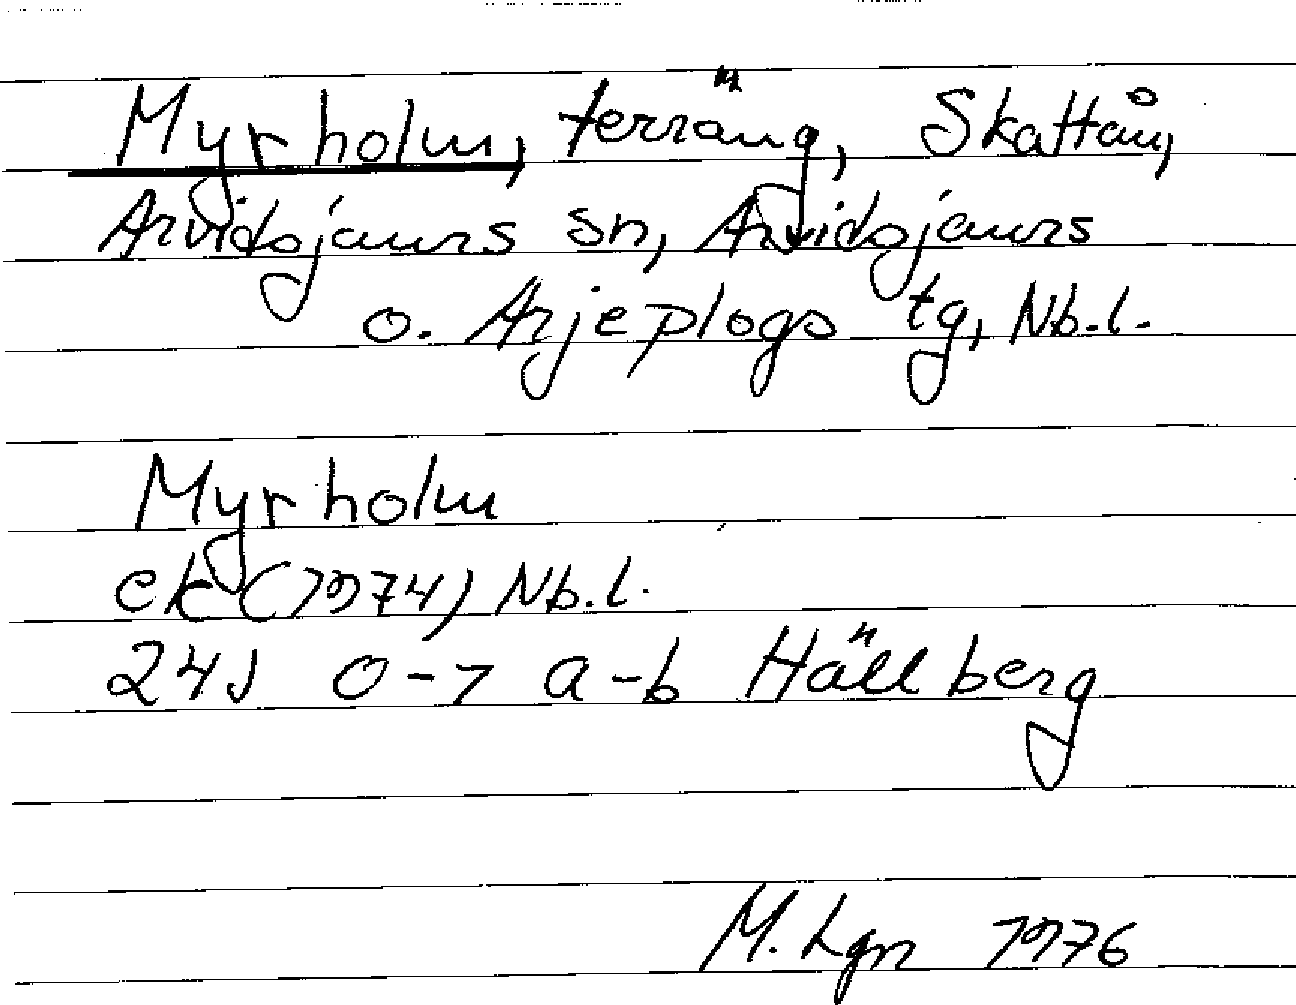 Myrholm, terräng, Skattån,
Arvidsjaurs sn, Arvidsjaurs
o. Arjeplogs tg, Nb.l.
Myrholm
ek (1974) Nb.l.
24J 0-1 a-b Hällberg
M. Lgn 1976